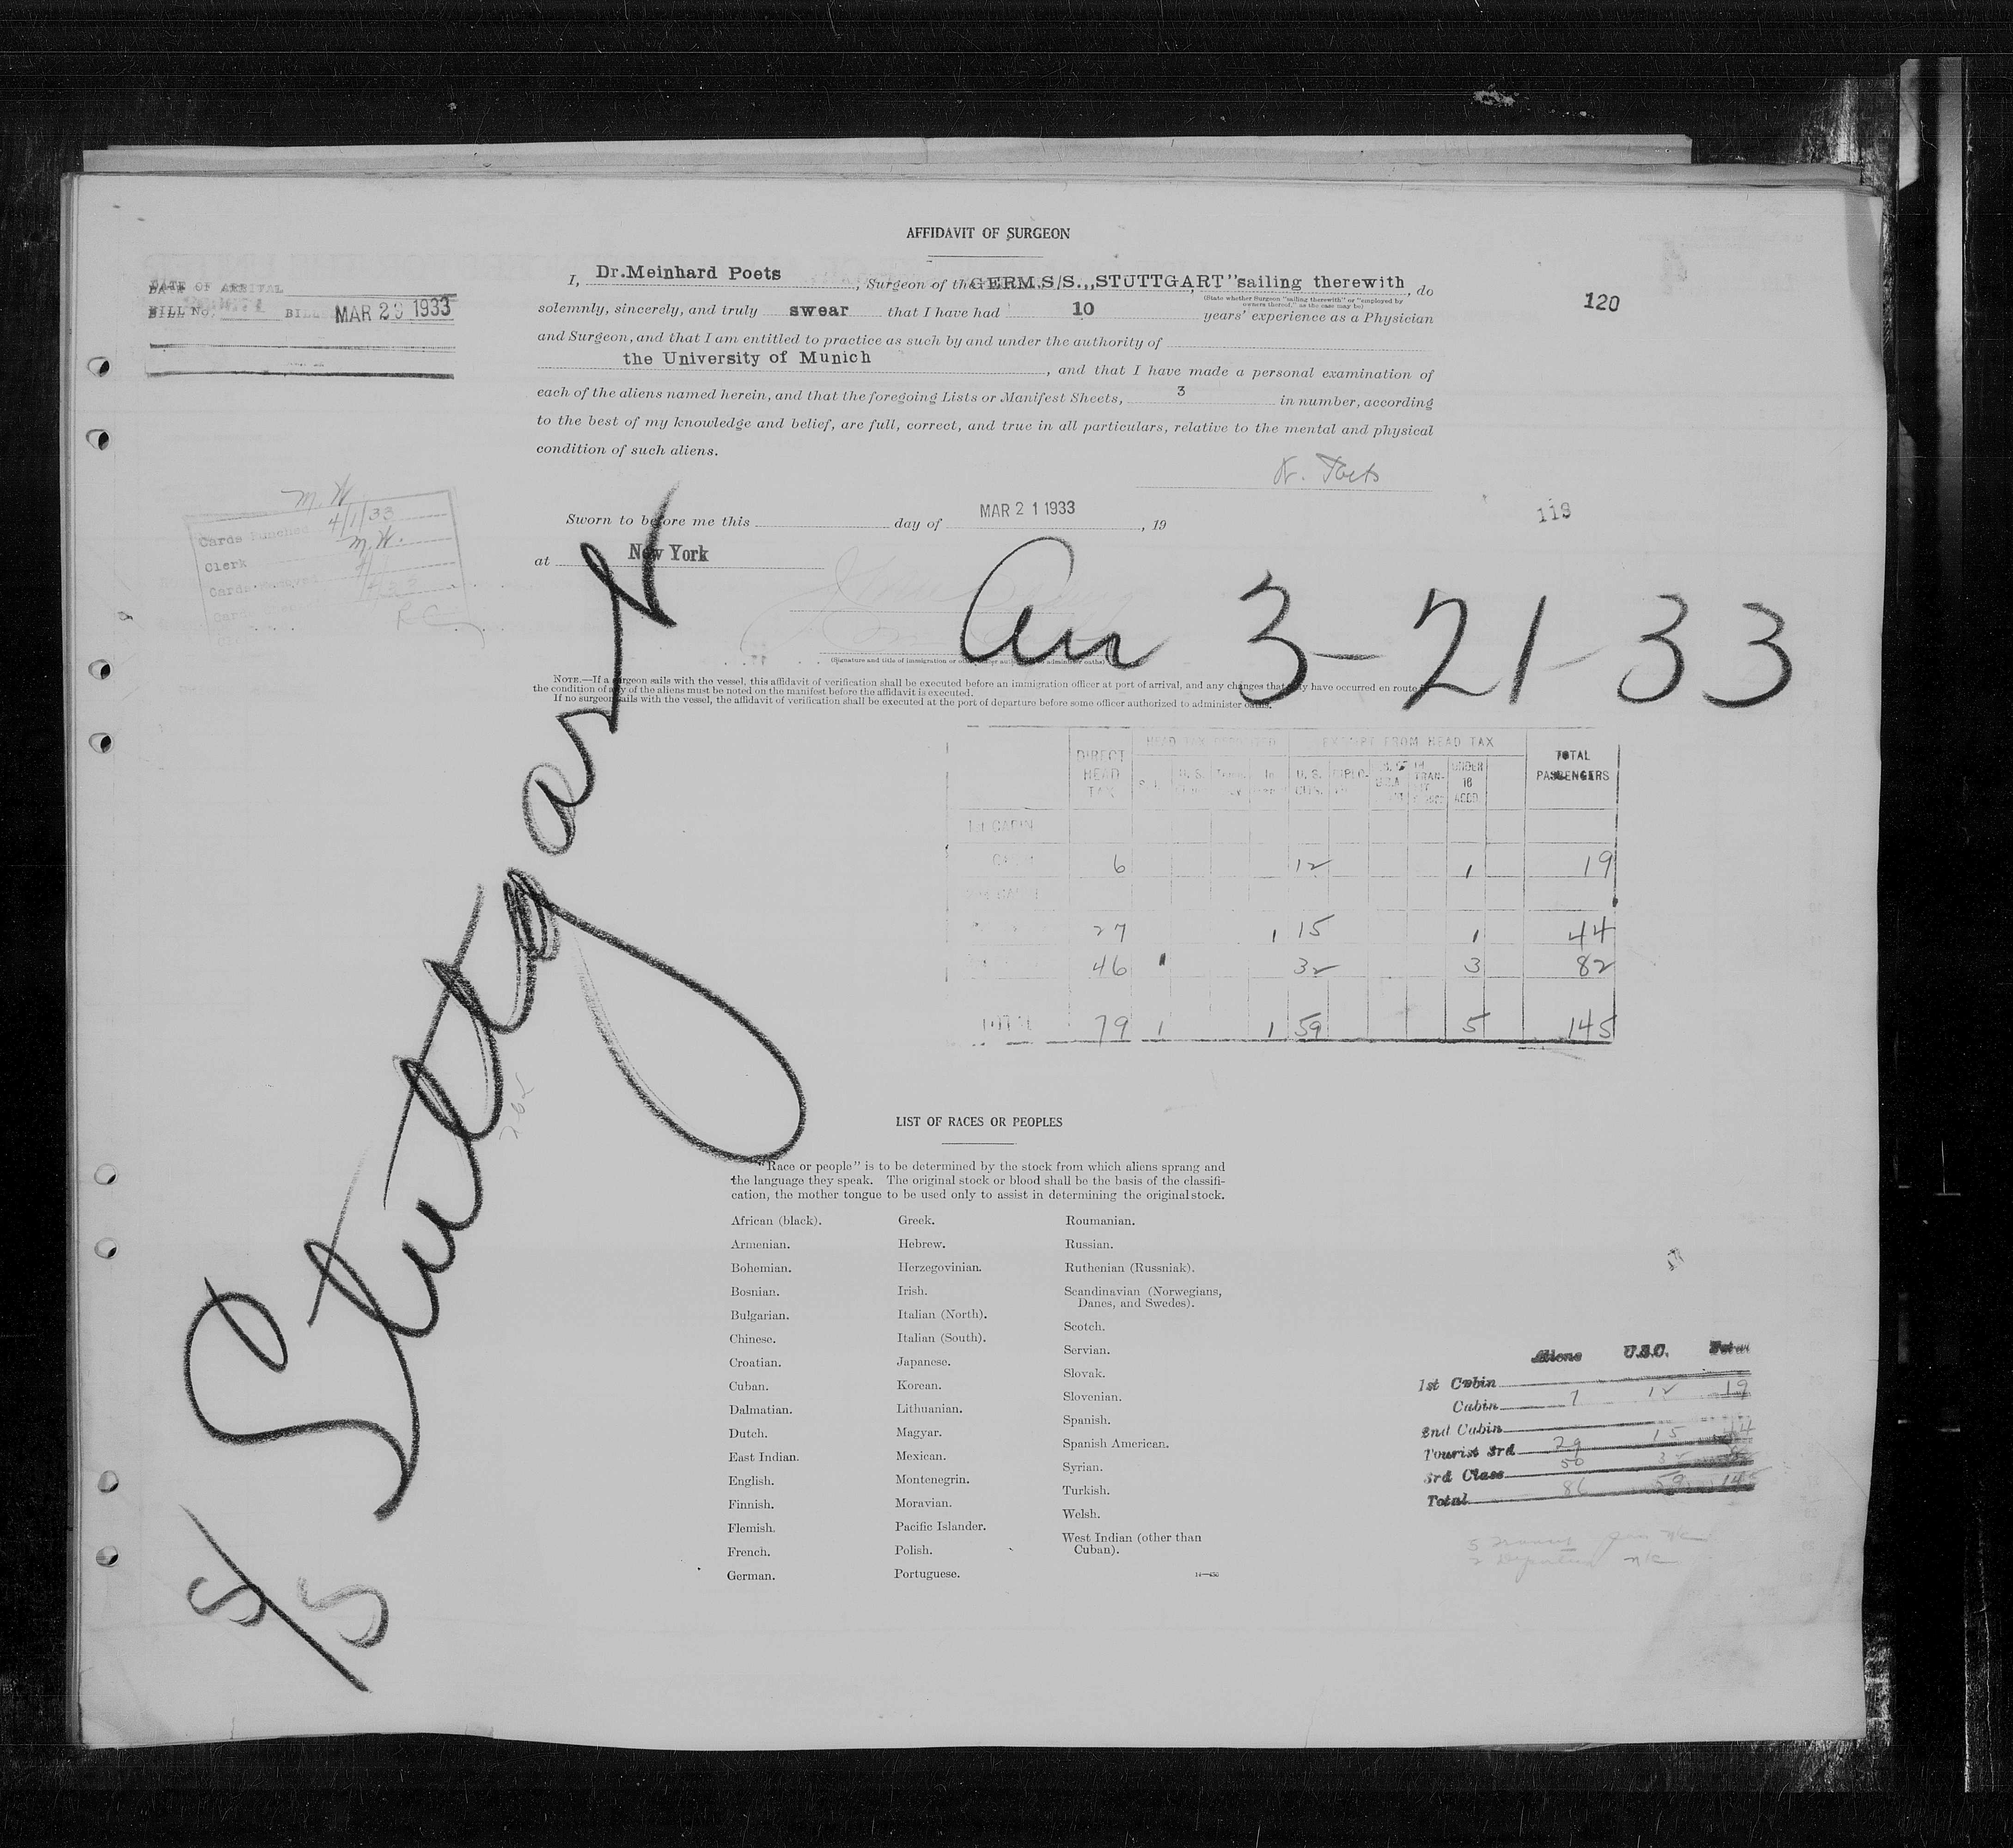 AFFIDAVIT OF SURGEON
I, Dr.Meinhard Poets, Surgeon of the GERM.S/S.„STUTTGART"sailing therewith, do
(State whether Surgeon "sailing therewith" or "employed by
owners thereof," as the case may be)
120
DATE OF ARRIVAL
BILL No. BILL MAR 29 1933
solemnly, sincerely, and truly swear that I have had 10 years' experience as a Physician
and Surgeon, and that I am entitled to practice as such by and under the authority of
the University of Munich, and that I have made a personal examination of
each of the aliens named herein, and that the foregoing Lists or Manifest Sheets, 3 in number, according
to the best of my knowledge and belief, are full, correct, and true in all particulars, relative to the mental and physical
condition of such aliens.
Poets
M. H.
Cards Punched 4/1/33
Clerk M. H.
Sworn to before me this day of MAR 21 1933, 19
118
at New York
Arr 3-21-33
(Signature and title of immigration or other officer authorized to administer oaths)
NOTE.—If a surgeon sails with the vessel, this affidavit of verification shall be executed before an immigration officer at port of arrival, and any changes that may have occurred en route in
the condition of any of the aliens must be noted on the manifest before the affidavit is executed.
If no surgeon sails with the vessel, the affidavit of verification shall be executed at the port of departure before some officer authorized to administer oaths.
S/S Stuttgart
DIRECT HEAD TAX EXEMPT FROM HEAD TAX TOTAL PASSENGERS
U. S. CUS. DIPLO- TRAN- UNDER 16 ACCD
1st CABIN
CABIN 6 12 1 19
27 1 15 1 44
46 1 32 3 82
TOTAL 79 1 1 59 5 145
LIST OF RACES OR PEOPLES
"Race or people" is to be determined by the stock from which aliens sprang and
the language they speak. The original stock or blood shall be the basis of the classifi-
cation, the mother tongue to be used only to assist in determining the original stock.
African (black).
Armenian.
Bohemian.
Bosnian.
Bulgarian.
Chinese.
Croatian.
Cuban.
Dalmatian.
Dutch.
East Indian.
English.
Finnish.
Flemish.
French.
German.
Greek.
Hebrew.
Herzegovinian.
Irish.
Italian (North).
Italian (South).
Japanese.
Korean.
Lithuanian.
Magyar.
Mexican.
Montenegrin.
Moravian.
Pacific Islander.
Polish.
Portuguese.
Roumanian.
Russian.
Ruthenian (Russniak).
Scandinavian (Norwegians,
Danes, and Swedes).
Scotch.
Servian.
Slovak.
Slovenian.
Spanish.
Spanish American.
Syrian.
Turkish.
Welsh.
West Indian (other than
Cuban).
14—450
Aliens U.S.C. Total
1st Cabin
Cabin 7 12 19
2nd Cabin
Tourist 3rd 29 15 44
3rd Class 50 32 82
Total 86 59 145